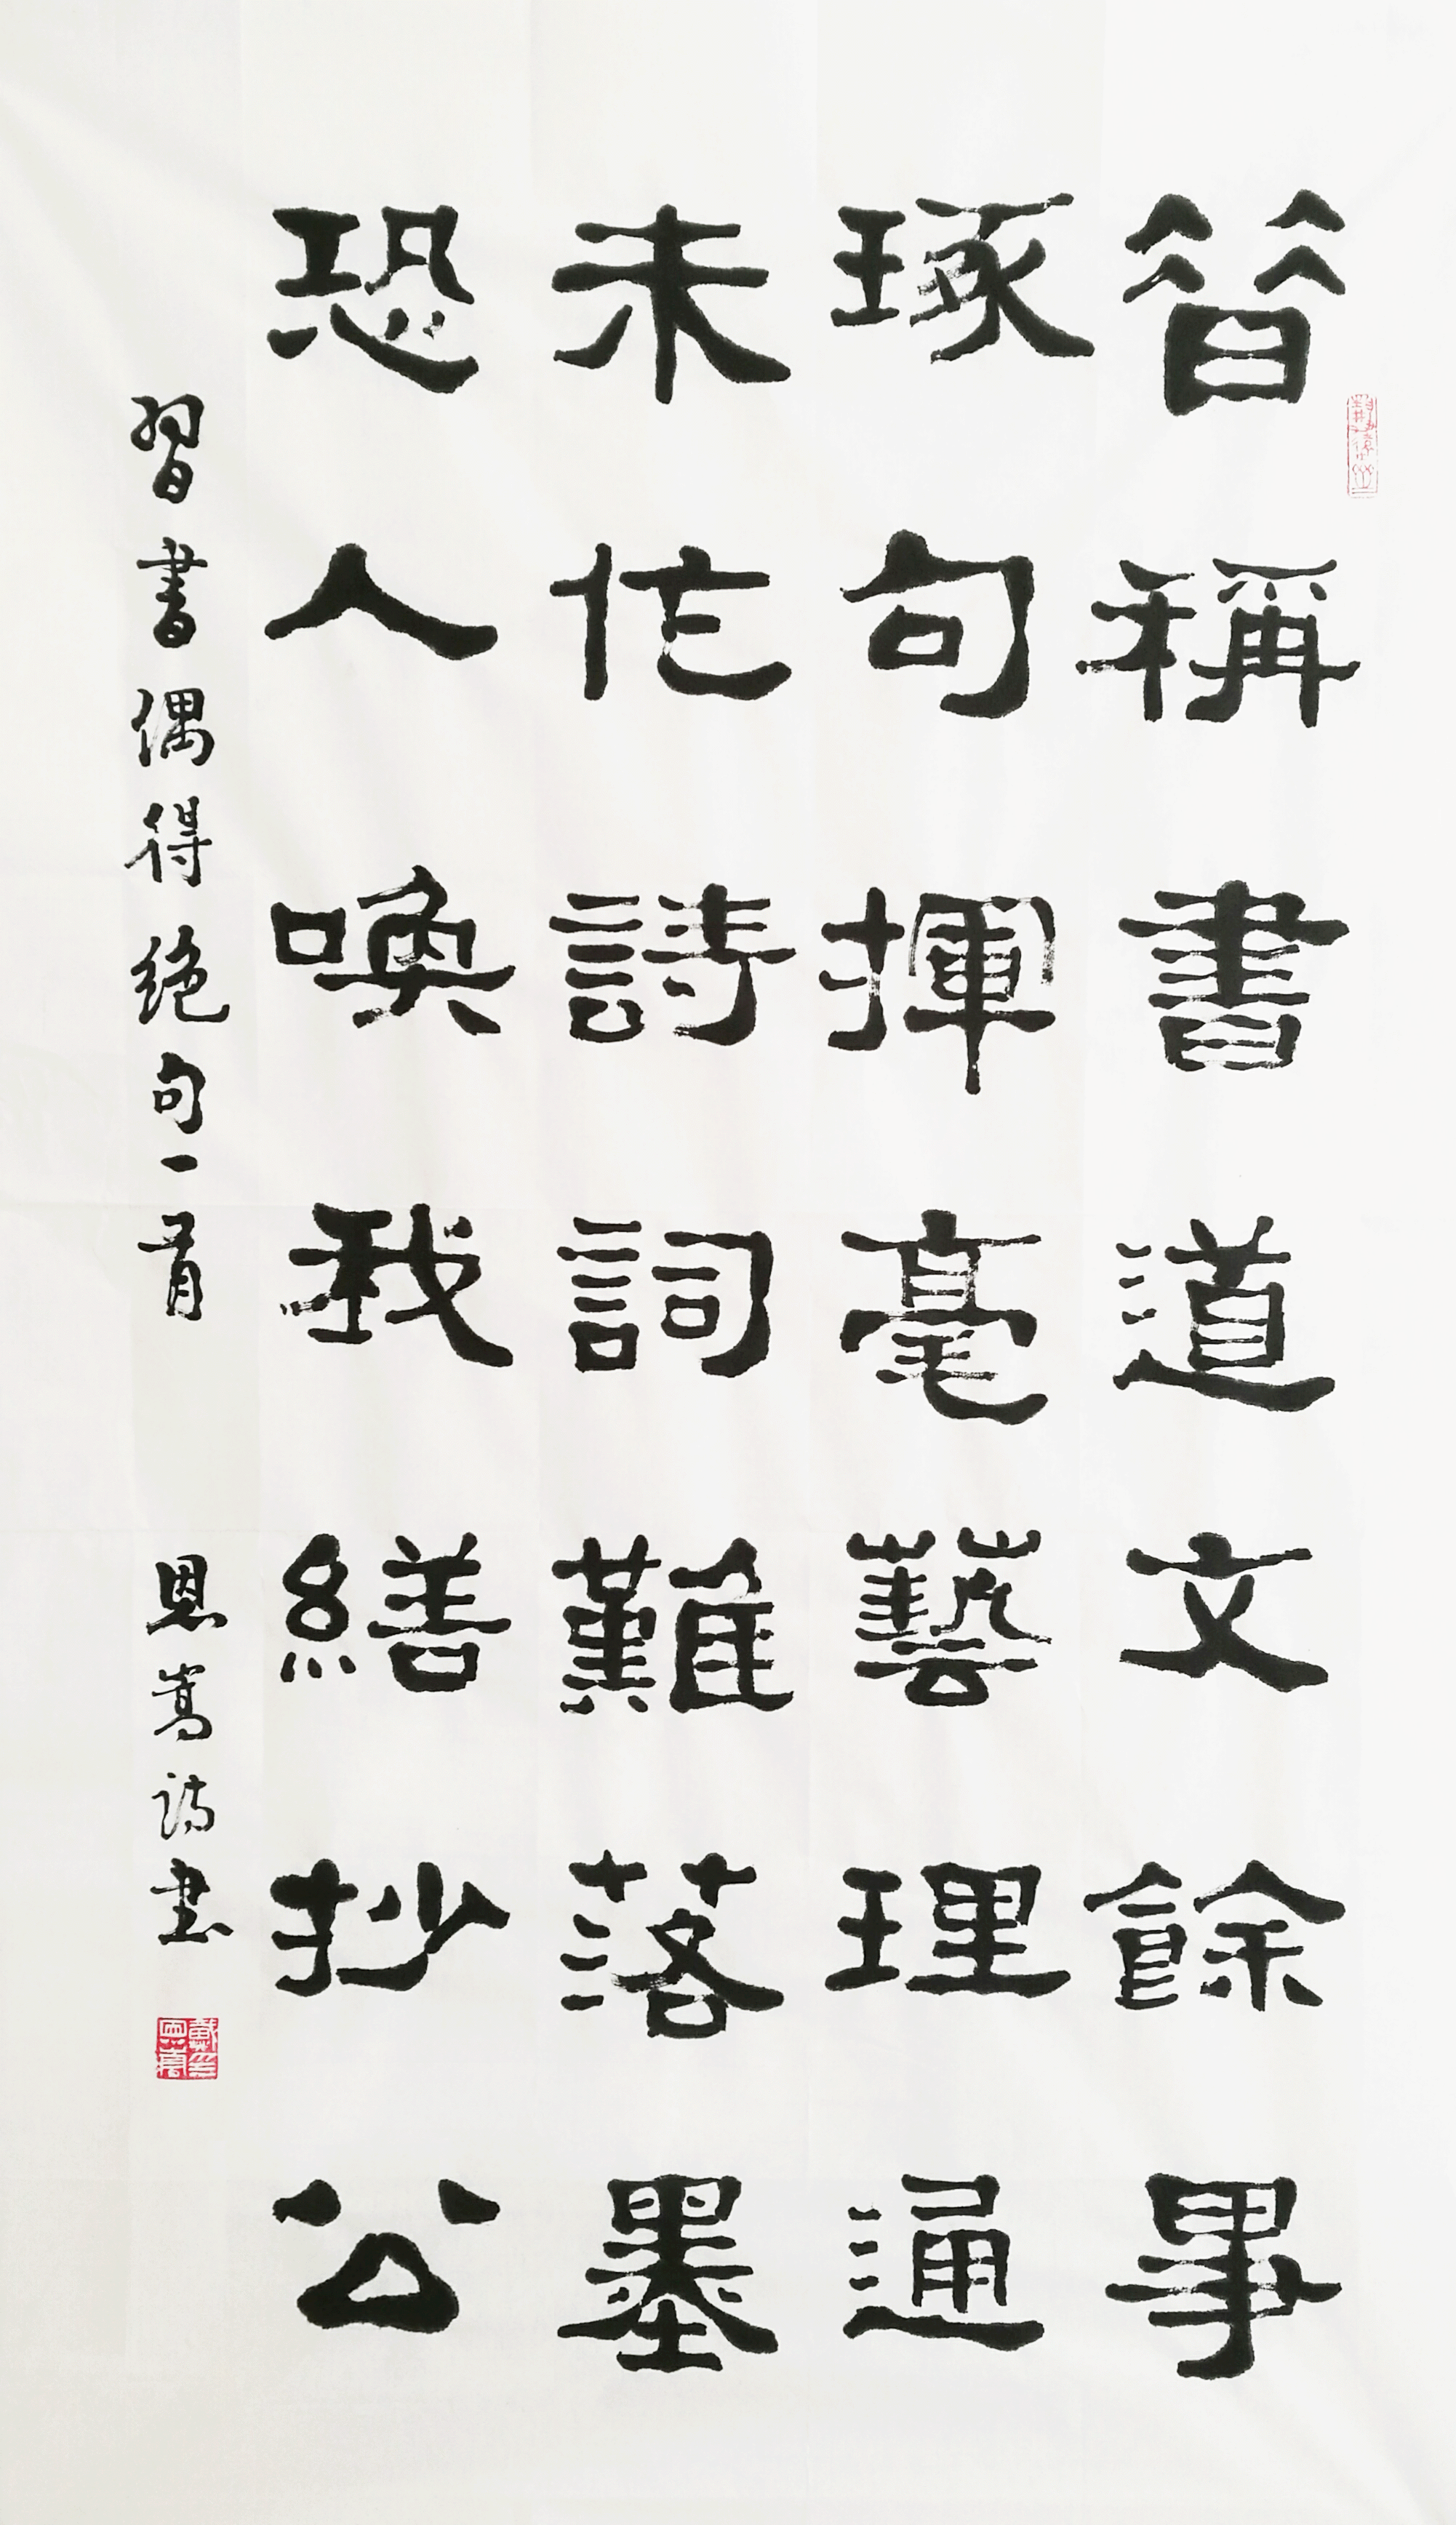 昔稱書道文餘事
琢句揮毫藝理通
未作詩詞難落墨
恐人喚我繕抄公
習書偶得絕句一首 恩嵩詩書